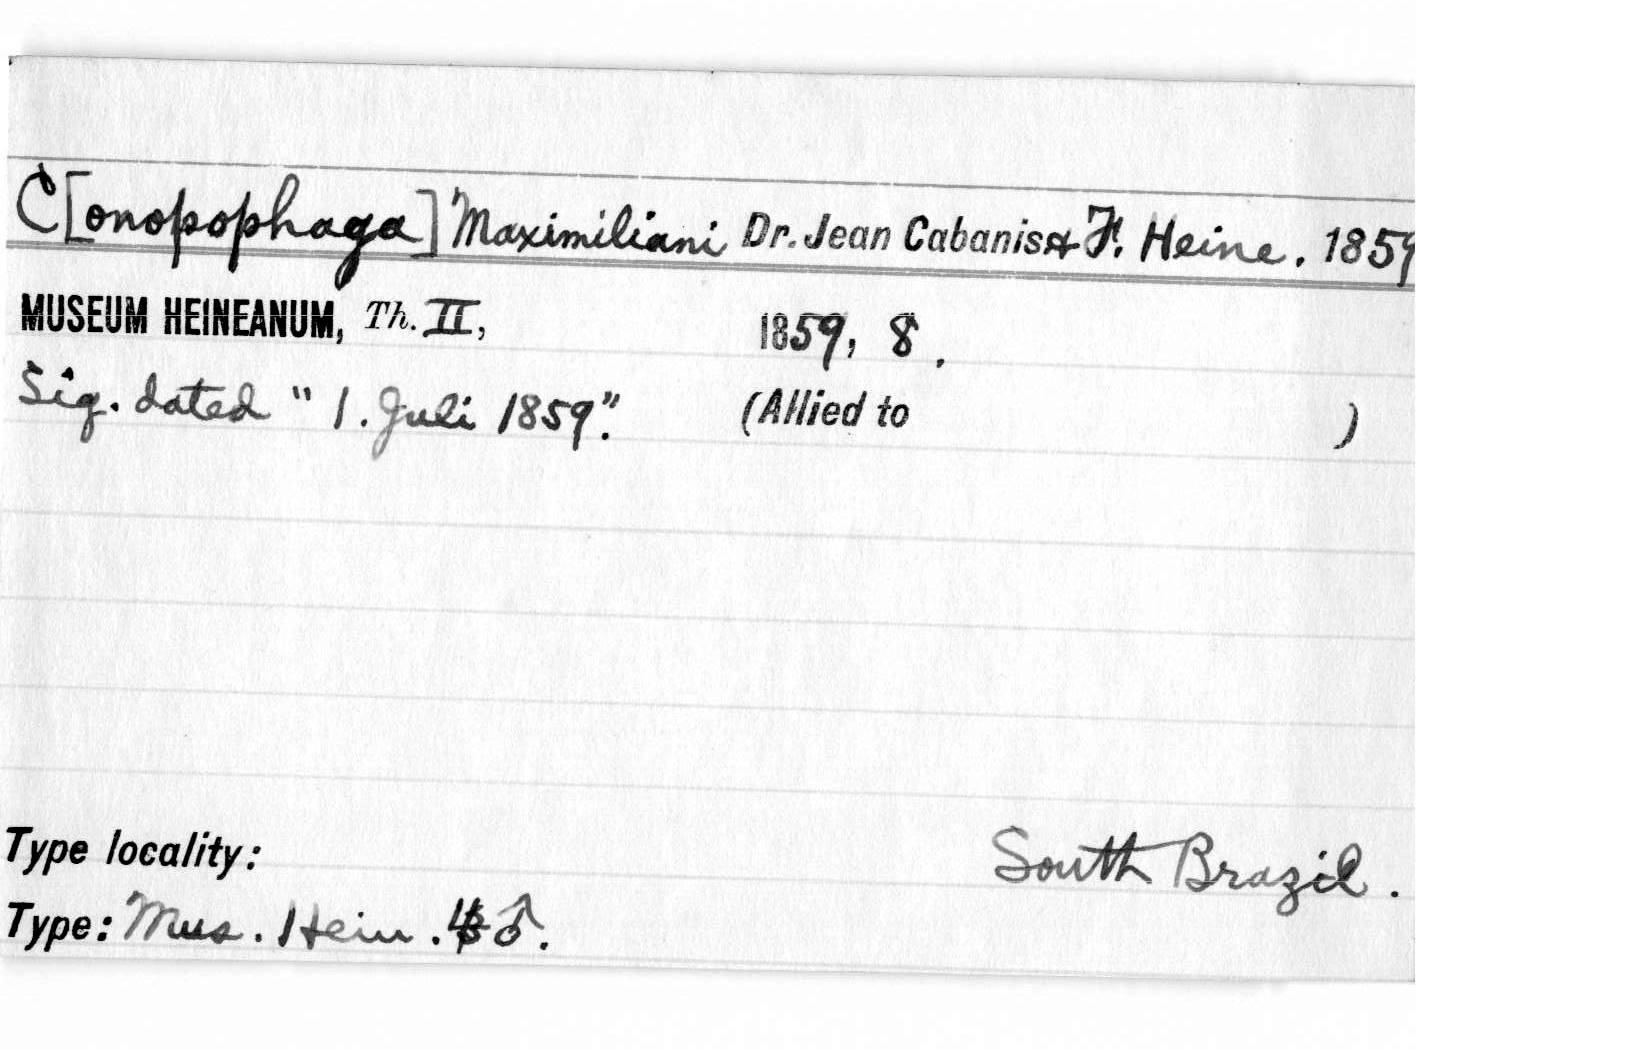 C[onopophaga] Maximiliani Dr. Jean Cabanis & F. Heine. 1859
MUSEUM HEINEANUM, Th. II, 1859, 8.
Sig. dated "1. Juli 1859". (Allied to )
Type locality: South Brazil.
Type: Mus. Hein. ♂.